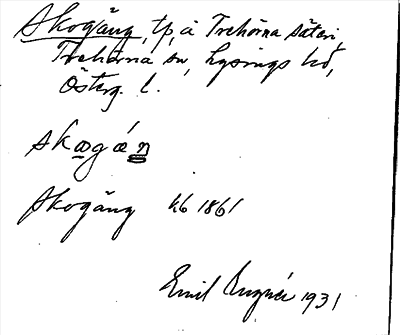 Skogäng, tp, å Trehörna säteri,
Trehörna sn, Lysings hd,
Österg. l.
skogäŋ
Skogäng kb 1861
Emil 1931